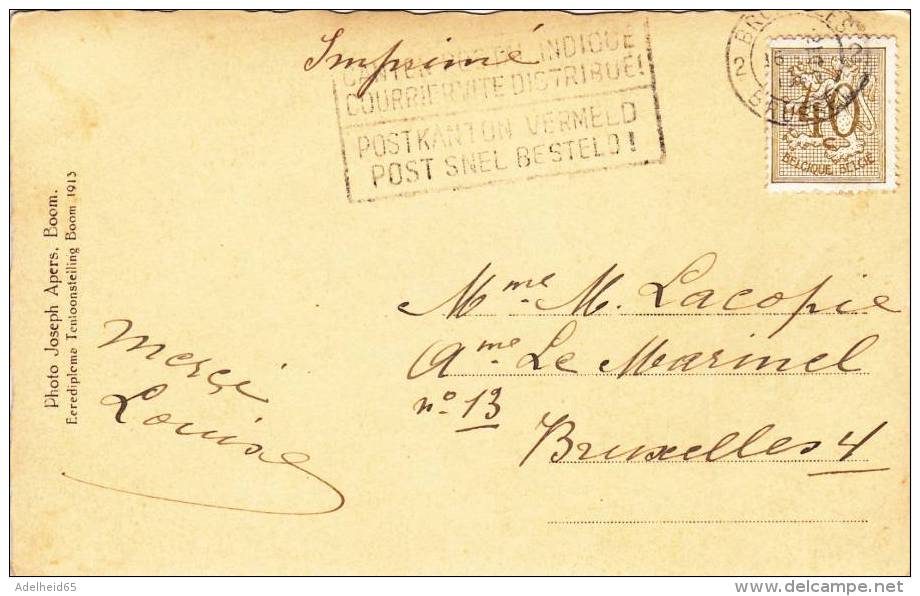 Imprimé
CANTON POSTAL INDIQUÉ
COURRIER VITE DISTRIBUÉ!
POSTKANTON VERMELD
POST SNEL BESTELD!
2
16
40
BELGIQUE·BELGIE
Photo Joseph Apers, Boom.
Eerediploma Tentoonstelling Boom 1913
Mme M. Lacopie
Ame Le Marinel
no 13
Bruxelles 4
merci
Louise
Adelheid65